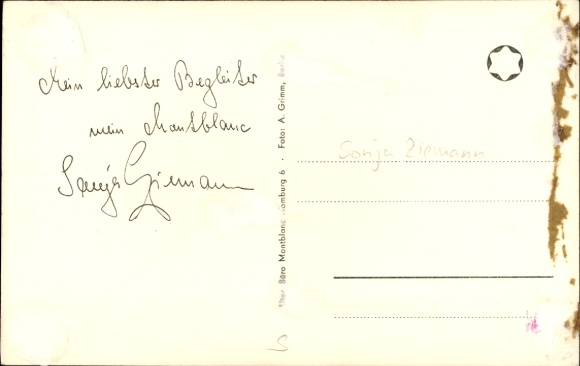 Mein liebster Begleiter
mein Montblanc
Sonja Ziemann
Büro Montblanc Hamburg 6 · Foto: A. Grimm, Berlin
Sonja Ziemann
S